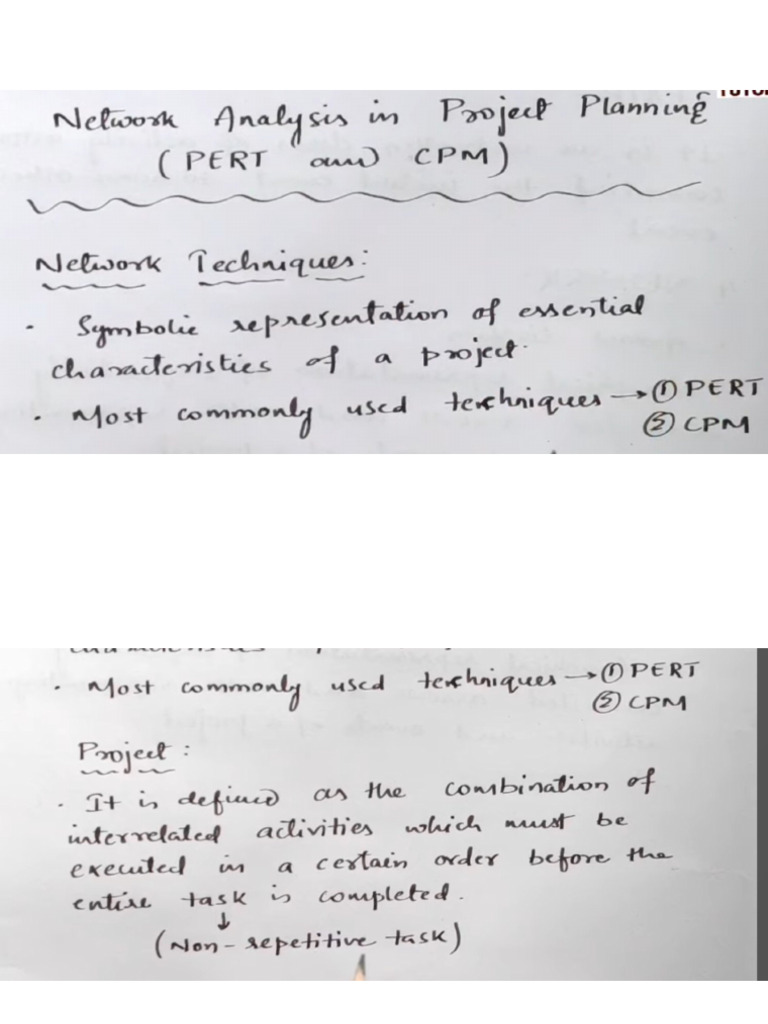 Network Analysis in Project Planning
(PERT and CPM)
Network Techniques:
. Symbolic representation of essential
characteristics of a project.
. Most commonly used techniques → ① PERT
② CPM
. Most commonly used techniques → ① PERT
② CPM
Project :
. It is defined as the combination of
interrelated activities which must be
executed in a certain order before the
entire task is completed.
↓
(Non-repetitive task)